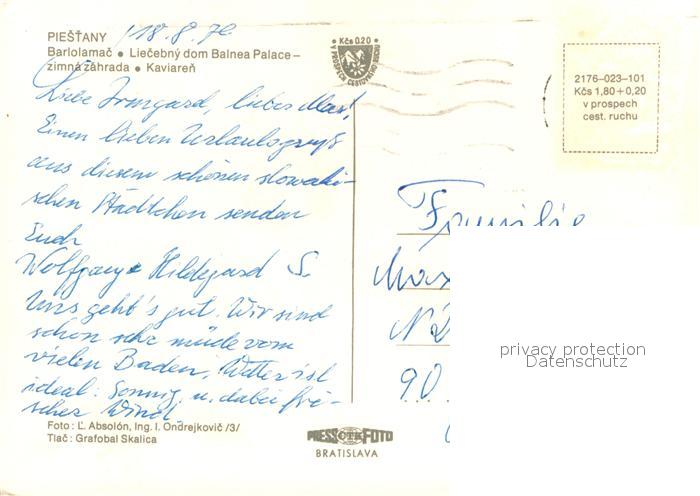 PIEŠŤANY
18.8.7
Barlolamač • Liečebný dom Balnea Palace –
zimná záhrada • Kaviareň
• Kčs 0.20 •
V PROSPECH CESTOVNÉHO RUCHU
2176–023–101
Kčs 1,80 + 0,20
v prospech
cest. ruchu
Liebe Irmgard, lieber Max!
Einen lieben Urlaubsgruß
aus diesem schönen slowaki-
schen Städtchen senden
Euch
Wolfgang + Hildegard S.
Uns geht's gut. Wir sind
schon sehr müde vom
vielen Baden, Wetter ist
ideal: Sonnig u. dabei fri-
scher Wind.
Familie
Max
90
privacy protection
Datenschutz
Foto: Ľ. Absolón, Ing. I. Ondrejkovič /3/
Tlač: Grafobal Skalica
PRESSFOTO
ČTK
BRATISLAVA